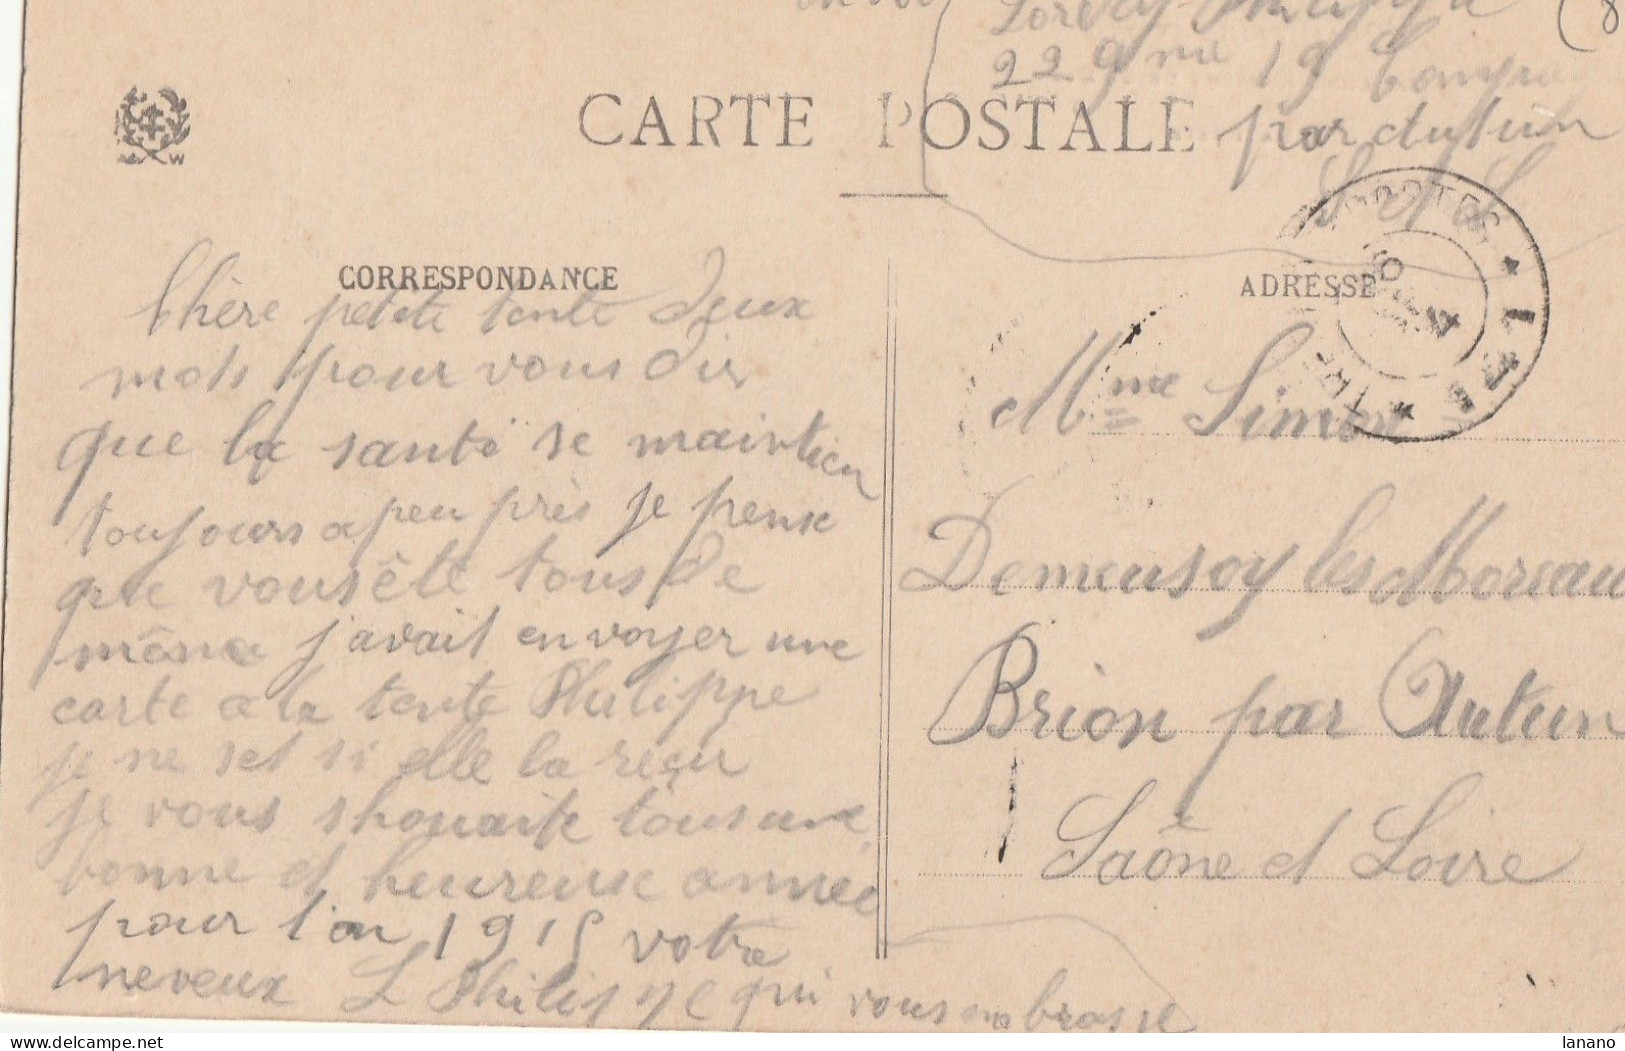 Philippe
229me 19 Compie
CARTE POSTALE
par Autun
S et L
CORRESPONDANCE
Chère petite tente Deux
mots pour vous dir
que la santé se maintien
toujours a peu près je pense
que vous ête tous de
même j'avait envoyer une
carte a la tente Philippe
je ne set si elle la reçu
je vous shouaite tous une
bonne et heureuse année
pour l'an 1915 votre
neveux L Philippe qui vous embrasse
ADRESSE
POSTES
Mme Simon
Demeusoy les Moreau
Brion par Autun
Saône et Loire
lanano